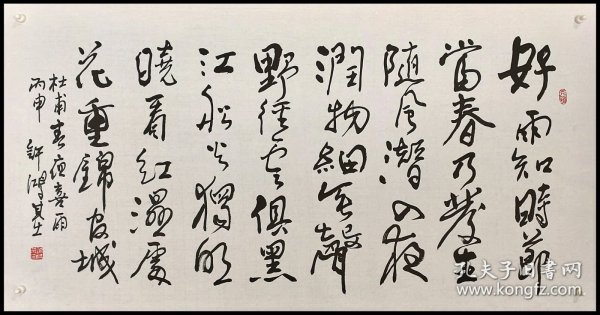 好雨知时節
當春乃發生
随風潛入夜
潤物細無聲
野径雲俱黑
江船火獨明
曉看紅濕處
花重錦官城
杜甫春夜喜雨
丙申 許鴻基生
孔夫子旧书网
www.kongfz.com